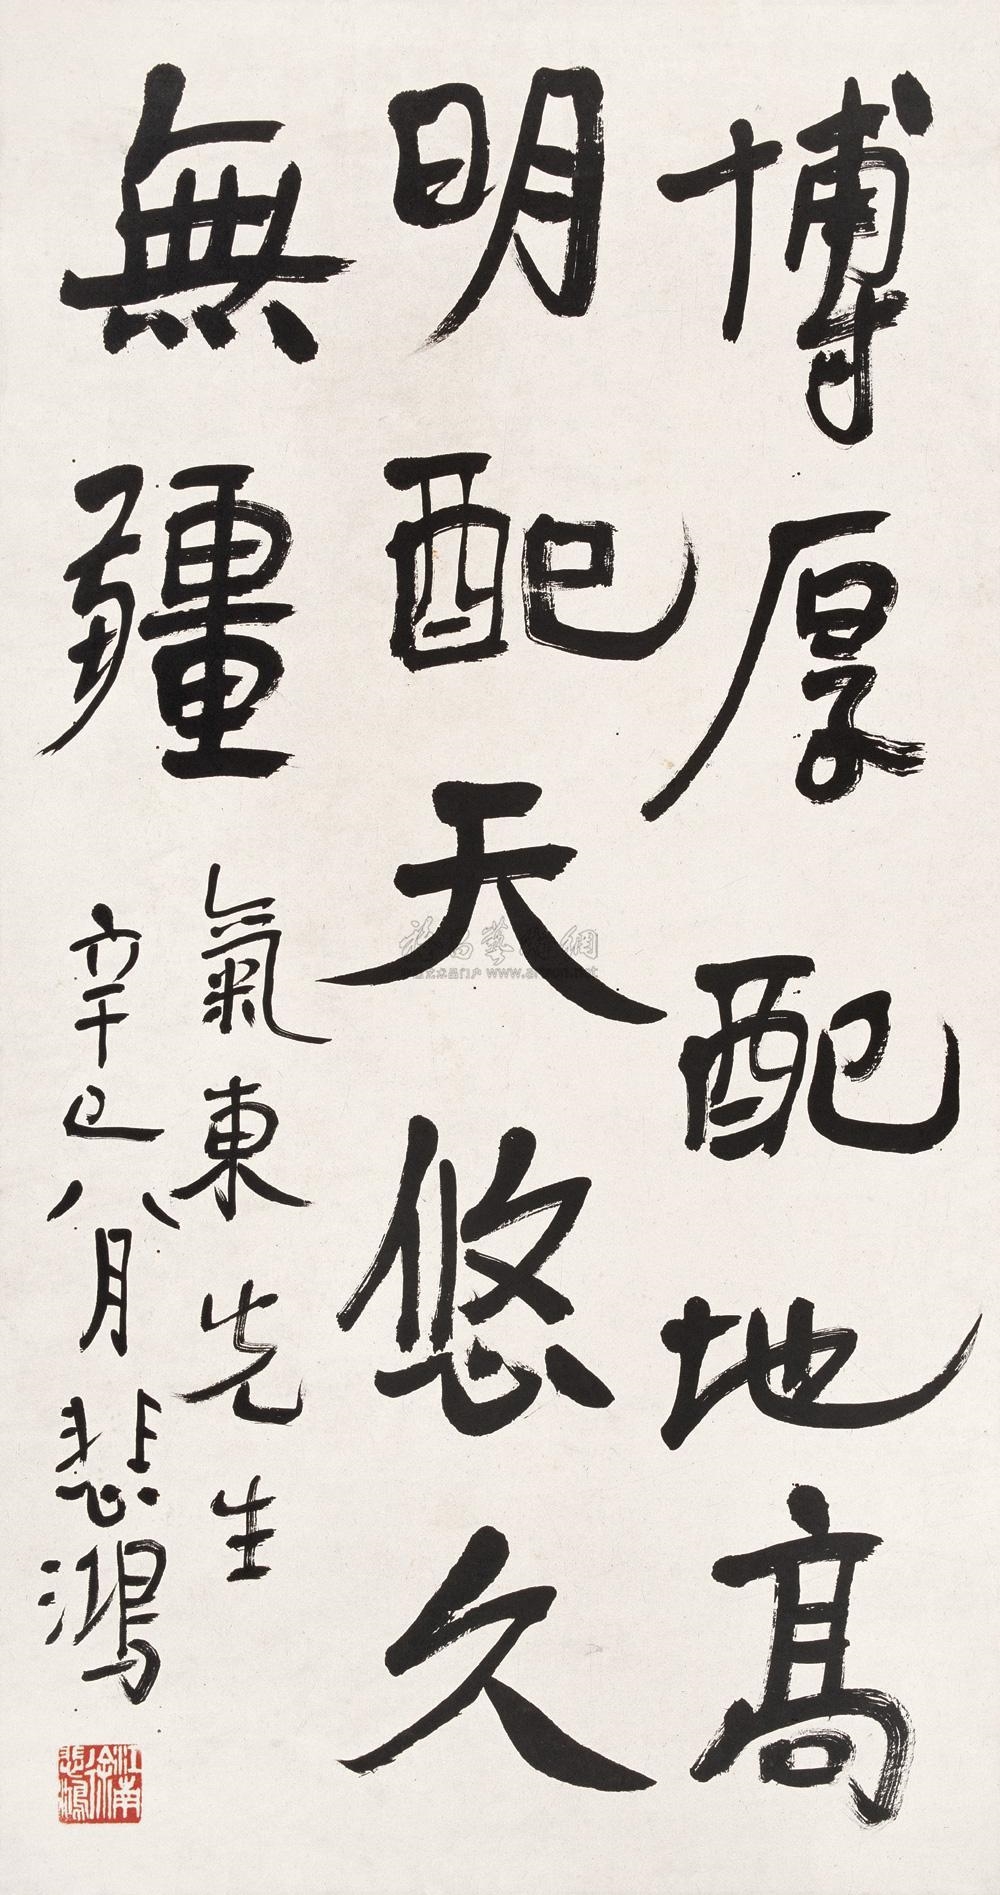 博厚配地高
明配天悠久
無疆
氣東先生
辛巳八月悲鴻
江南徐悲鴻
www.artron.net